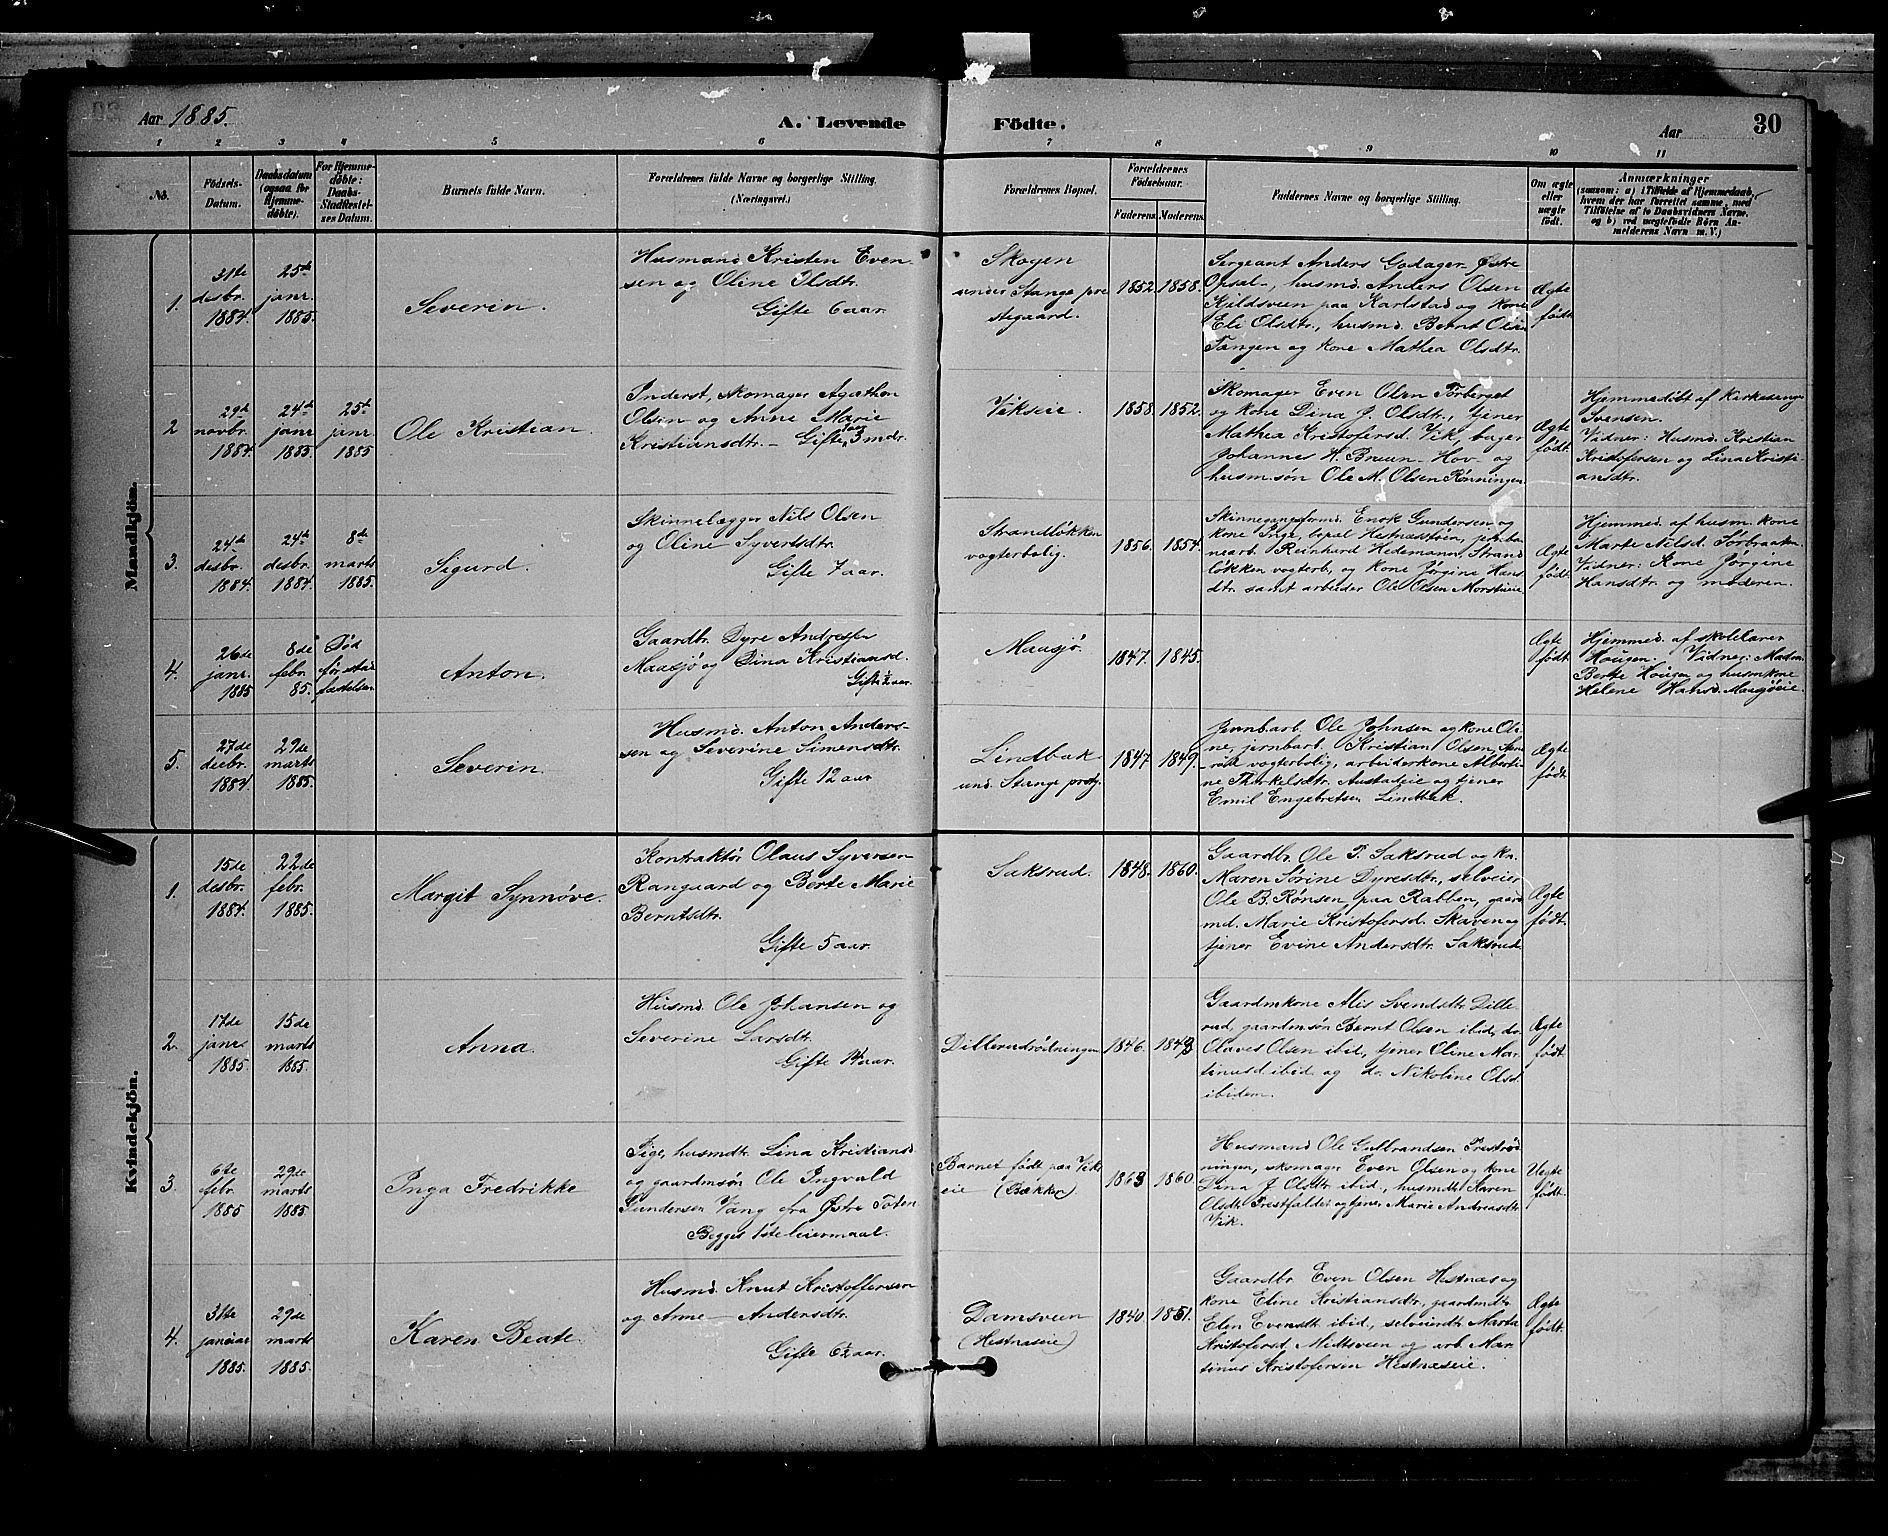 Aar 1885.
A. Levende
Födte.
Aar
30
1 2 3 4 5 6 7 8 9 10 11
No.
Födsels-
Datum.
Daabsdatum
(ogsaa for
Hjemme-
døbte).
For Hjemme-
døbte:
Daabs-
Stadfæstel-
ses Datum.
Barnets fulde Navn.
Forældrenes fulde Navne og borgerlige Stilling.
(Næringsvei.)
Forældrenes Bopæl.
Forældrenes
Födselsaar.
Faderens. Moderens.
Faddernes Navne og borgerlige Stilling.
Om ægte
eller
uægte
født.
Anmærkninger
(saasom: a) i Tilfælde af Hjemmedaab,
hvem der har forrettet samme, med
Tilføielse af to Daabsvidners Navne,
og b) ved uægtefødte Börn An-
melderens Navn m. V.)
Mandkjön.
1.
31te
desbr.
1884.
25de
janr.
1885.
Severin.
Husmand Kristen Even-
sen og Oline Olsdtr.
Gifte 6 aar.
Skogen
under Stange pre
stegaard.
1852. 1858.
Sergeant Anders Godager Østre
Opsal, husmd. Anders Olsen
Kildsveen paa Karlstad og kone
Eli Olsdtr., husmd. Bernt Olsen
Tangen og kone Mathea Olsdtr.
Ægte
født
2
29de
novbr.
1884.
24de
janr.
1885.
25de
janr.
1885
Ole Kristian.
Inderst, skomager Agathon
Olsen og Anne Marie
Kristiansdtr. – Gifte 3 mdr.
Vikseie.
1858. 1852.
Skomager Even Olsen Torberget
og kone Dina J. Olsdtr., tjener
Mathea Kristofersd. Vik, bager
Johannes H. Bruun – Hov – og
husm.søn Ole M. Olsen Rønningen
Ægte
født.
Hjemmedøbt af Kirkesanger
Svensen.
Vidner: Husmd. Kristian
Kristofersen og Lina Kristi-
ansdtr.
3.
24de
desbr.
1884.
24de
desbr.
1884.
8de
marts
1885.
Sigurd.
Skinnelægger Nils Olsen
og Oline Syvertsdtr.
Gifte 7 aar.
Strandløkken
vogterbolig.
1856. 1854.
Skinnegangsformd. Enok Gundersen og
kone Inge, bopal Hestnæstøien, jernba-
nearb. Reinhard Hedemann, Strand
løkken vogterb., og kone Jørgine Hans
dtr. samt arbeider Ole Olsen Morstueie
Ægte
født
Hjemmed. af husm.kone
Marte Nilsd. Sørbraaten.
Vidner: Kone Jørgine
Hansdtr. og moderen.
4.
26de
janr.
1885
8de
febr.
85.
Død
før stad
fæstelsen
Anton.
Gaardbr. Dyre Andresen
Maasjø og Dina Kristiansd.
Gifte ½ aar.
Mausjø.
1847. 1845.
Ægte
født.
Hjemmed. af skolelærer
Hougen. Vidner: Madm.
Berte Hougen og husmkone
Helene Hansd. Mausjøeie.
5.
27de
desbr.
1884
29de
marts
1885.
Severin.
Husmd. Anton Anders-
sen og Severine Simensdtr.
Gifte 12 aar
Lindbak
und. Stange prstg.
1847. 1849.
Jernbarb. Ole Johnsen og kone Oli-
ne, jernbarb. Kristian Olsen,
vogterbolig, arbeiderkone Alberti-
ne Therkelsdtr. Austadeie og tjener
Emil Engebretsen Lindbak.
Ægte
født.
Kvindekjön.
1.
15de
desbr.
1884.
22de
febr.
1885.
Margit Synnøve.
Kontraktør Olaus Syversen
Ranguard og Berte Marie
Berntsdtr.
Gifte 5 aar.
Saksrud.
1848. 1860.
Gaardbr. Ole T. Saksrud og kn.
Maren Sørine Dyresdtr., selveier
Ole B. Rønsen paa Rabben, gaard
md. Marie Kristofersd. Skaven og
tjener Evine Andersdtr. Saksrud
Ægte
født.
2.
17de
janr.
1885.
15de
marts
1885.
Anna.
Husmd. Ole Johansen og
Severine Larsdtr.
Gifte 14 aar.
Dillerudrødningen
1846. 1843
Gaardmkone Alis Svendsdtr. Dille-
rud, gaardmsøn Bernt Olsen ibid, do.
Olaves Olsen ibid, tjener Oline Mar-
tinusd. ibid og do. Nikoline Olsd.
ibidem.
Ægte
født
3.
6te
febr.
1885
29de
marts
1885.
Inga Fredrikke
Pige, husmdtr. Lina Kristiansd.
og gaardmsøn Ole Ingvald
Gundersen Vang fra Østre Toten
Begges 1ste leiermaal.
Barnet født paa Vik
eie (Bækken)
1863 1860
Husmand Ole Gulbrandsen Præstrø
ningen, skomager Even Olsen og kone
Dina J. Olsdtr. ibid, husmdtr. Karen
Olsdtr. Præstfaldet og tjener Marie Andreasdtr.
Vik.
Uegte
født.
4.
31te
januar
1885.
29de
marts
1885.
Karen Beate.
Husmd. Knut Kristoffersen
og Anne Andersdtr.
Gifte 6½ aar.
Damsveen
(Hestnæseie)
1840. 1851.
Gaardbr. Even Olsen Hestnæs og
kone Eline Kristiansdtr., gaardmdtr.
Elen Evensdtr. ibid, selveierdtr. Marte
Kristofersd. Midtsveen og arb. Mar-
tinus Kristofersen Hestnæseie.
Ægte
født.